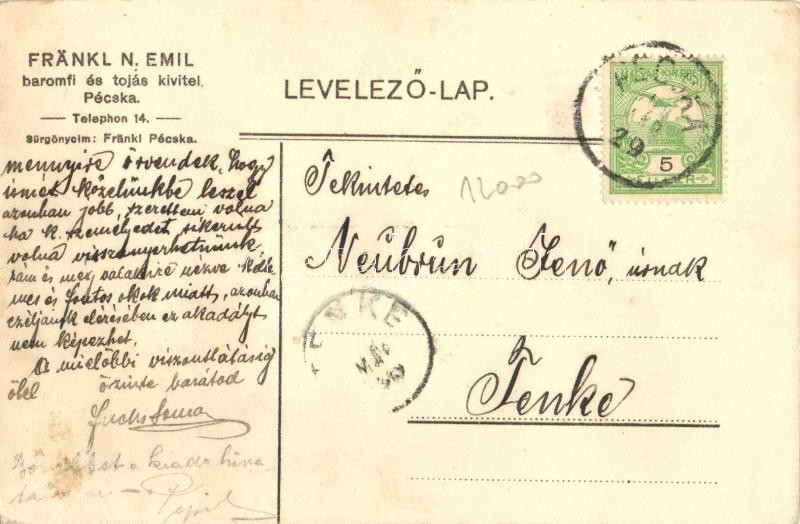 FRÄNKL N. EMIL
baromfi és tojás kivitel
Pécska.
Telephon 14.
Sürgönycim: Fränkl Pécska.
LEVELEZŐ-LAP.
5
FILLÉR
29
mennyire örvendek, hogy
ismét közelünkbe leszel
azonban jobb, szerettem volna
ha k. személyedet sikerült
volna visszanyerhetnünk
rám és meg valakire nézve
és fontos okok miatt, azonban
czéljaink elérésében ez akadályt
nem képezhet.
A mielőbbi viszontlátásig
ölel őszinte barátod
Fuchs
Tekintetes
12000
Neubrun Jenő, úrnak
TENKE
Tenke